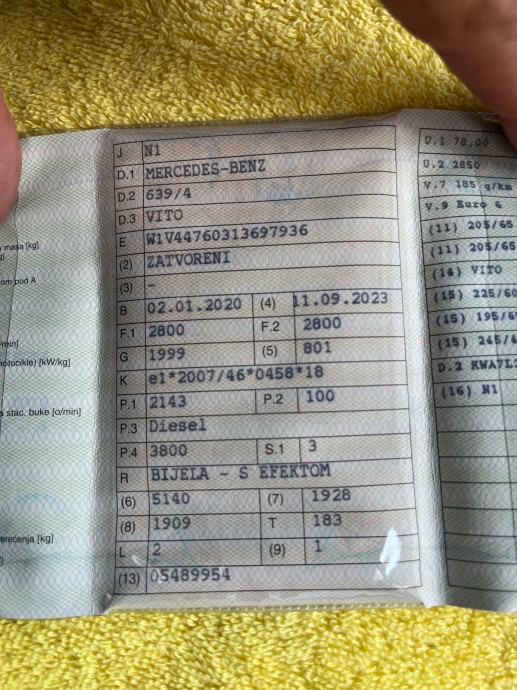 masa [kg]
om pod A
/min]
motocikle) [kW/kg]
a stac. buke [o/min]
erećenja [kg]
J N1
D.1 MERCEDES-BENZ
D.2 639/4
D.3 VITO
E W1V44760313697936
(2) ZATVORENI
(3) -
B 02.01.2020 (4) 11.09.2023
F.1 2800 F.2 2800
G 1999 (5) 801
K e1*2007/46*0458*18
P.1 2143 P.2 100
P.3 Diesel
P.4 3800 S.1 3
R BIJELA - S EFEKTOM
(6) 5140 (7) 1928
(8) 1909 T 183
L 2 (9) 1
(13) 05489954
U.1 78,00
U.2 2850
V.7 185 g/km
V.9 Euro 6
(11) 205/65
(11) 205/65
(14) VITO
(15) 225/60
(15) 195/6
(15) 245/4
D.2 KWA7L
(16) N1